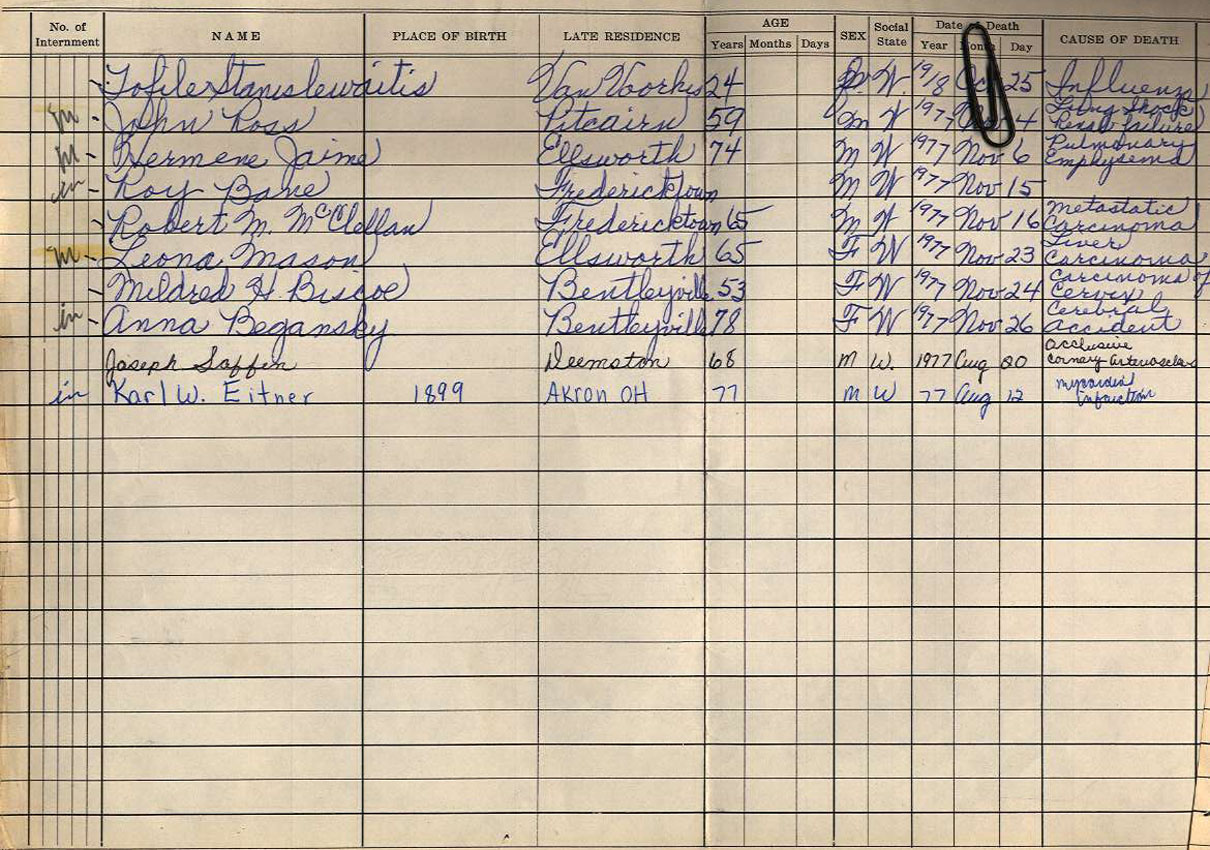 No. of Internment NAME PLACE OF BIRTH LATE RESIDENCE AGE Years Months Days SEX Social State Date of Death Year Month Day CAUSE OF DEATH
Tofile Stanislewaitis Van Voorhis 24 W. 1918 Oct 25 Influenza
m John Ross Pitcairn 59 m W 1977 4 Lung Shock Renal failure
m Hermene Jaime Ellsworth 74 M W 1977 Nov 6 Pulmonary Emphysema
in Roy Bane Fredericktown M W 1977 Nov 15
Robert M. McClellan Fredericktown 65 M W 1977 Nov 16 Metastatic Carcinoma
m Leona Mason Ellsworth 65 F W 1977 Nov 23 Liver Carcinoma
Mildred H. Biscoe Bentleyville 53 F W 1977 Nov 24 Carcinoma of Cervix
in Anna Begansky Bentleyville 78 F W 1977 Nov 26 Cerebral Accident
Joseph Saffin Deemston 68 M W. 1977 Aug 20 acclusive
in Karl W. Eitner 1899 Akron OH 77 M W 77 Aug 12 myocardial infarction